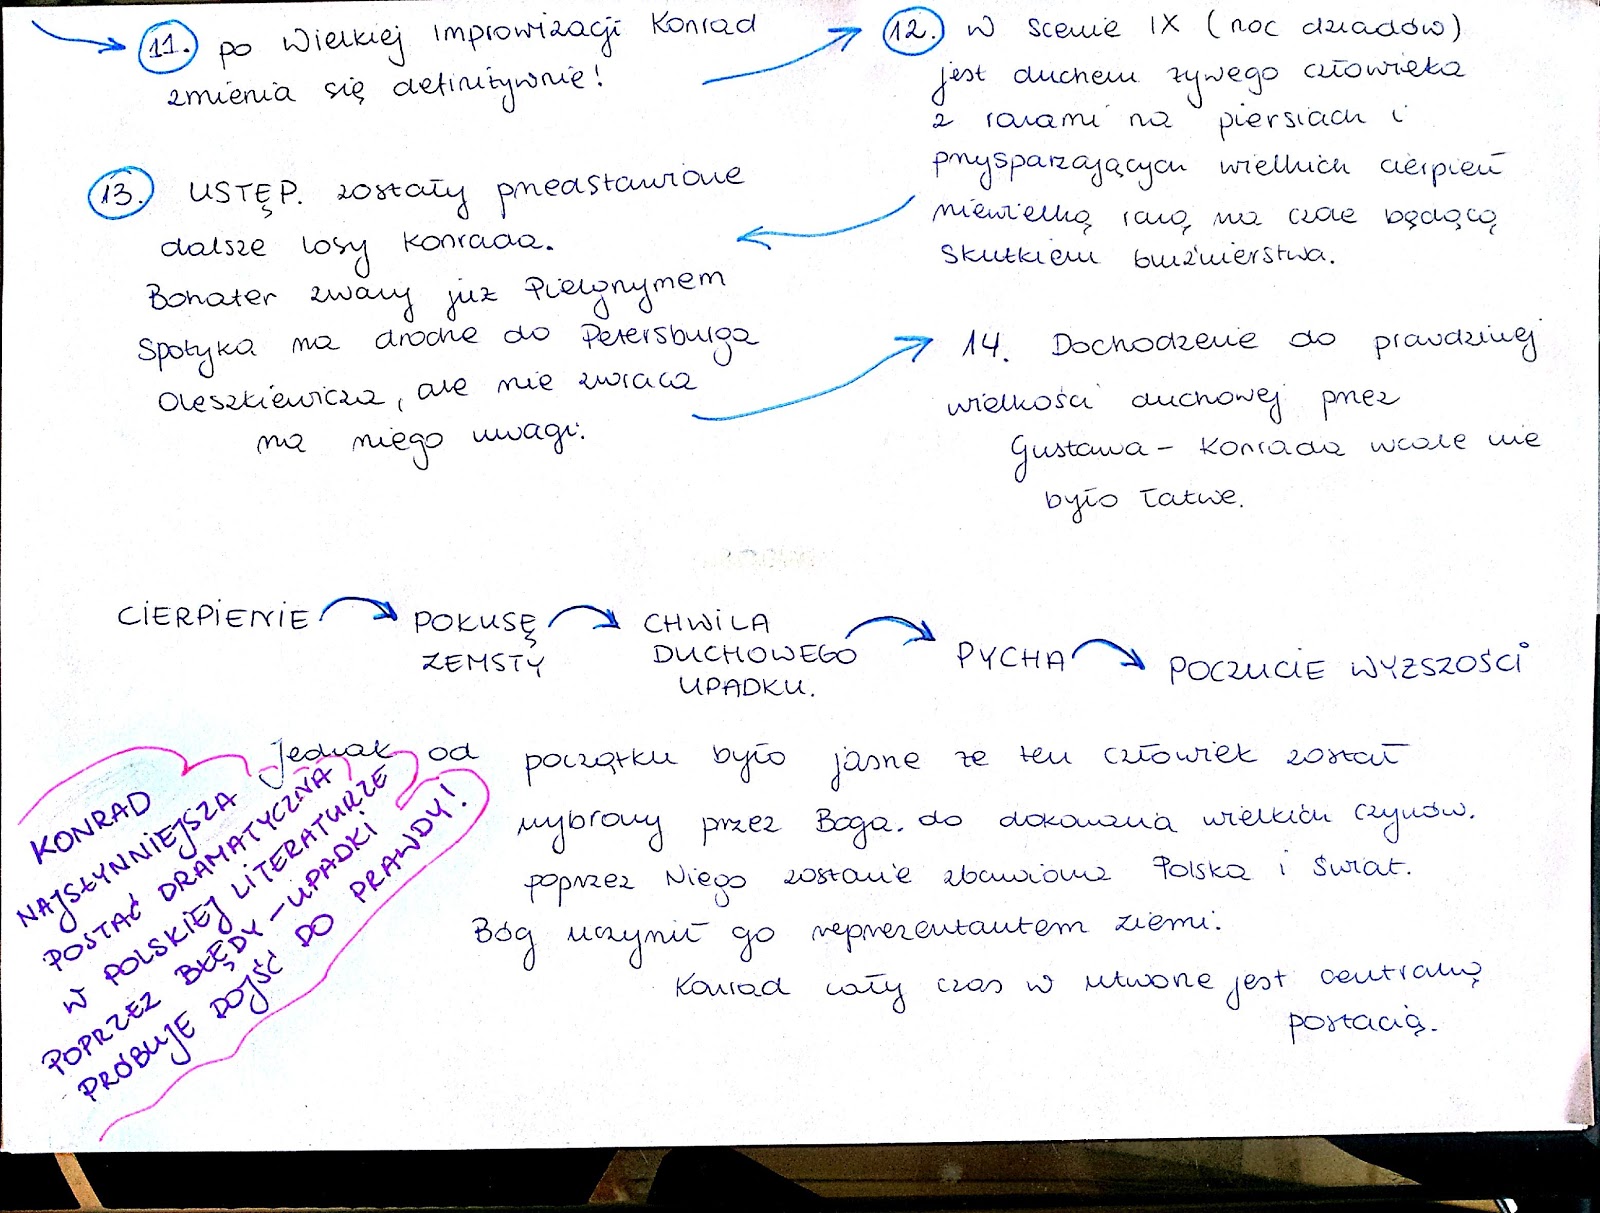 11. po Wielkiej Improwizacji Konrad
zmienia się definitywnie!
12. W scenie IX (noc dziadów)
jest duchem żywego człowieka
z ranami na piersiach i
przysparzających wielkich cierpień
niewielką raną na czole będącą
skutkiem bluźnierstwa.
13. USTĘP. zostały przedstawione
dalsze losy Konrada.
Bohater zwany już Pielgrzymem
spotyka na drodze do Petersburga
Oleszkiewicza, ale nie zwraca
na niego uwagi.
14. Dochodzenie do prawdziwej
wielkości duchowej przez
Gustawa - Konrada wcale nie
było łatwe.
CIERPIENIE
POKUSĘ
ZEMSTY
CHWILA
DUCHOWEGO
UPADKU.
PYCHA
POCZUCIE WYŻSZOŚCI
Jednak od początku było jasne że ten człowiek został
wybrany przez Boga. do dokonania wielkich czynów.
poprzez Niego zostanie zbawiona Polska i świat.
Bóg uczynił go reprezentantem ziemi.
Konrad cały czas w utworze jest centralną
postacią.
KONRAD
NAJSŁYNNIEJSZA
POSTAĆ DRAMATYCZNA
W POLSKIEJ LITERATURZE
POPRZEZ BŁĘDY - UPADKI
PRÓBUJE DOJŚĆ DO PRAWDY!